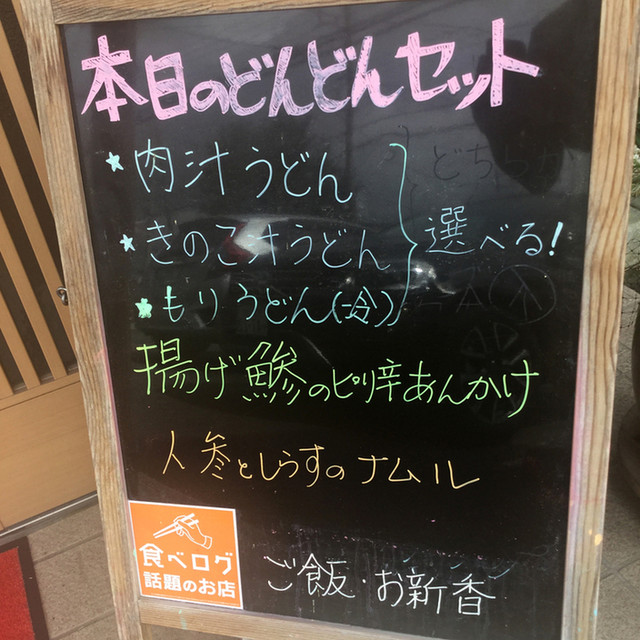 本日のどんどんセット
★肉汁うどん
★きのこ汁うどん
★もりうどん(冷)
選べる!
揚げ鯵のピリ辛あんかけ
人参としらすのナムル
ご飯・お新香
食べログ
話題のお店